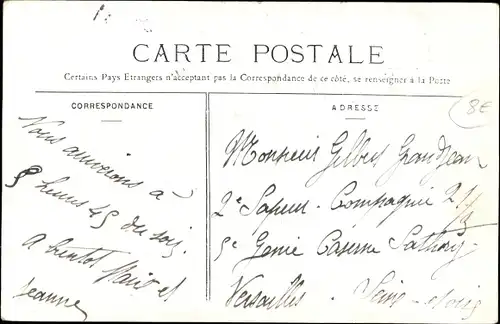 CARTE POSTALE
Certains Pays Etrangers n'acceptant pas la Correspondance de ce côté, se renseigner à la Poste
CORRESPONDANCE
Vous arriverons à
8 heures 45 du soir,
A bientôt et
Jeanne
ADRESSE
8€
Monsieur Gilbert Grandjean
2e Sapeur - Compagnie
5e Génie Caserne
Versailles - Seine-et-Oise